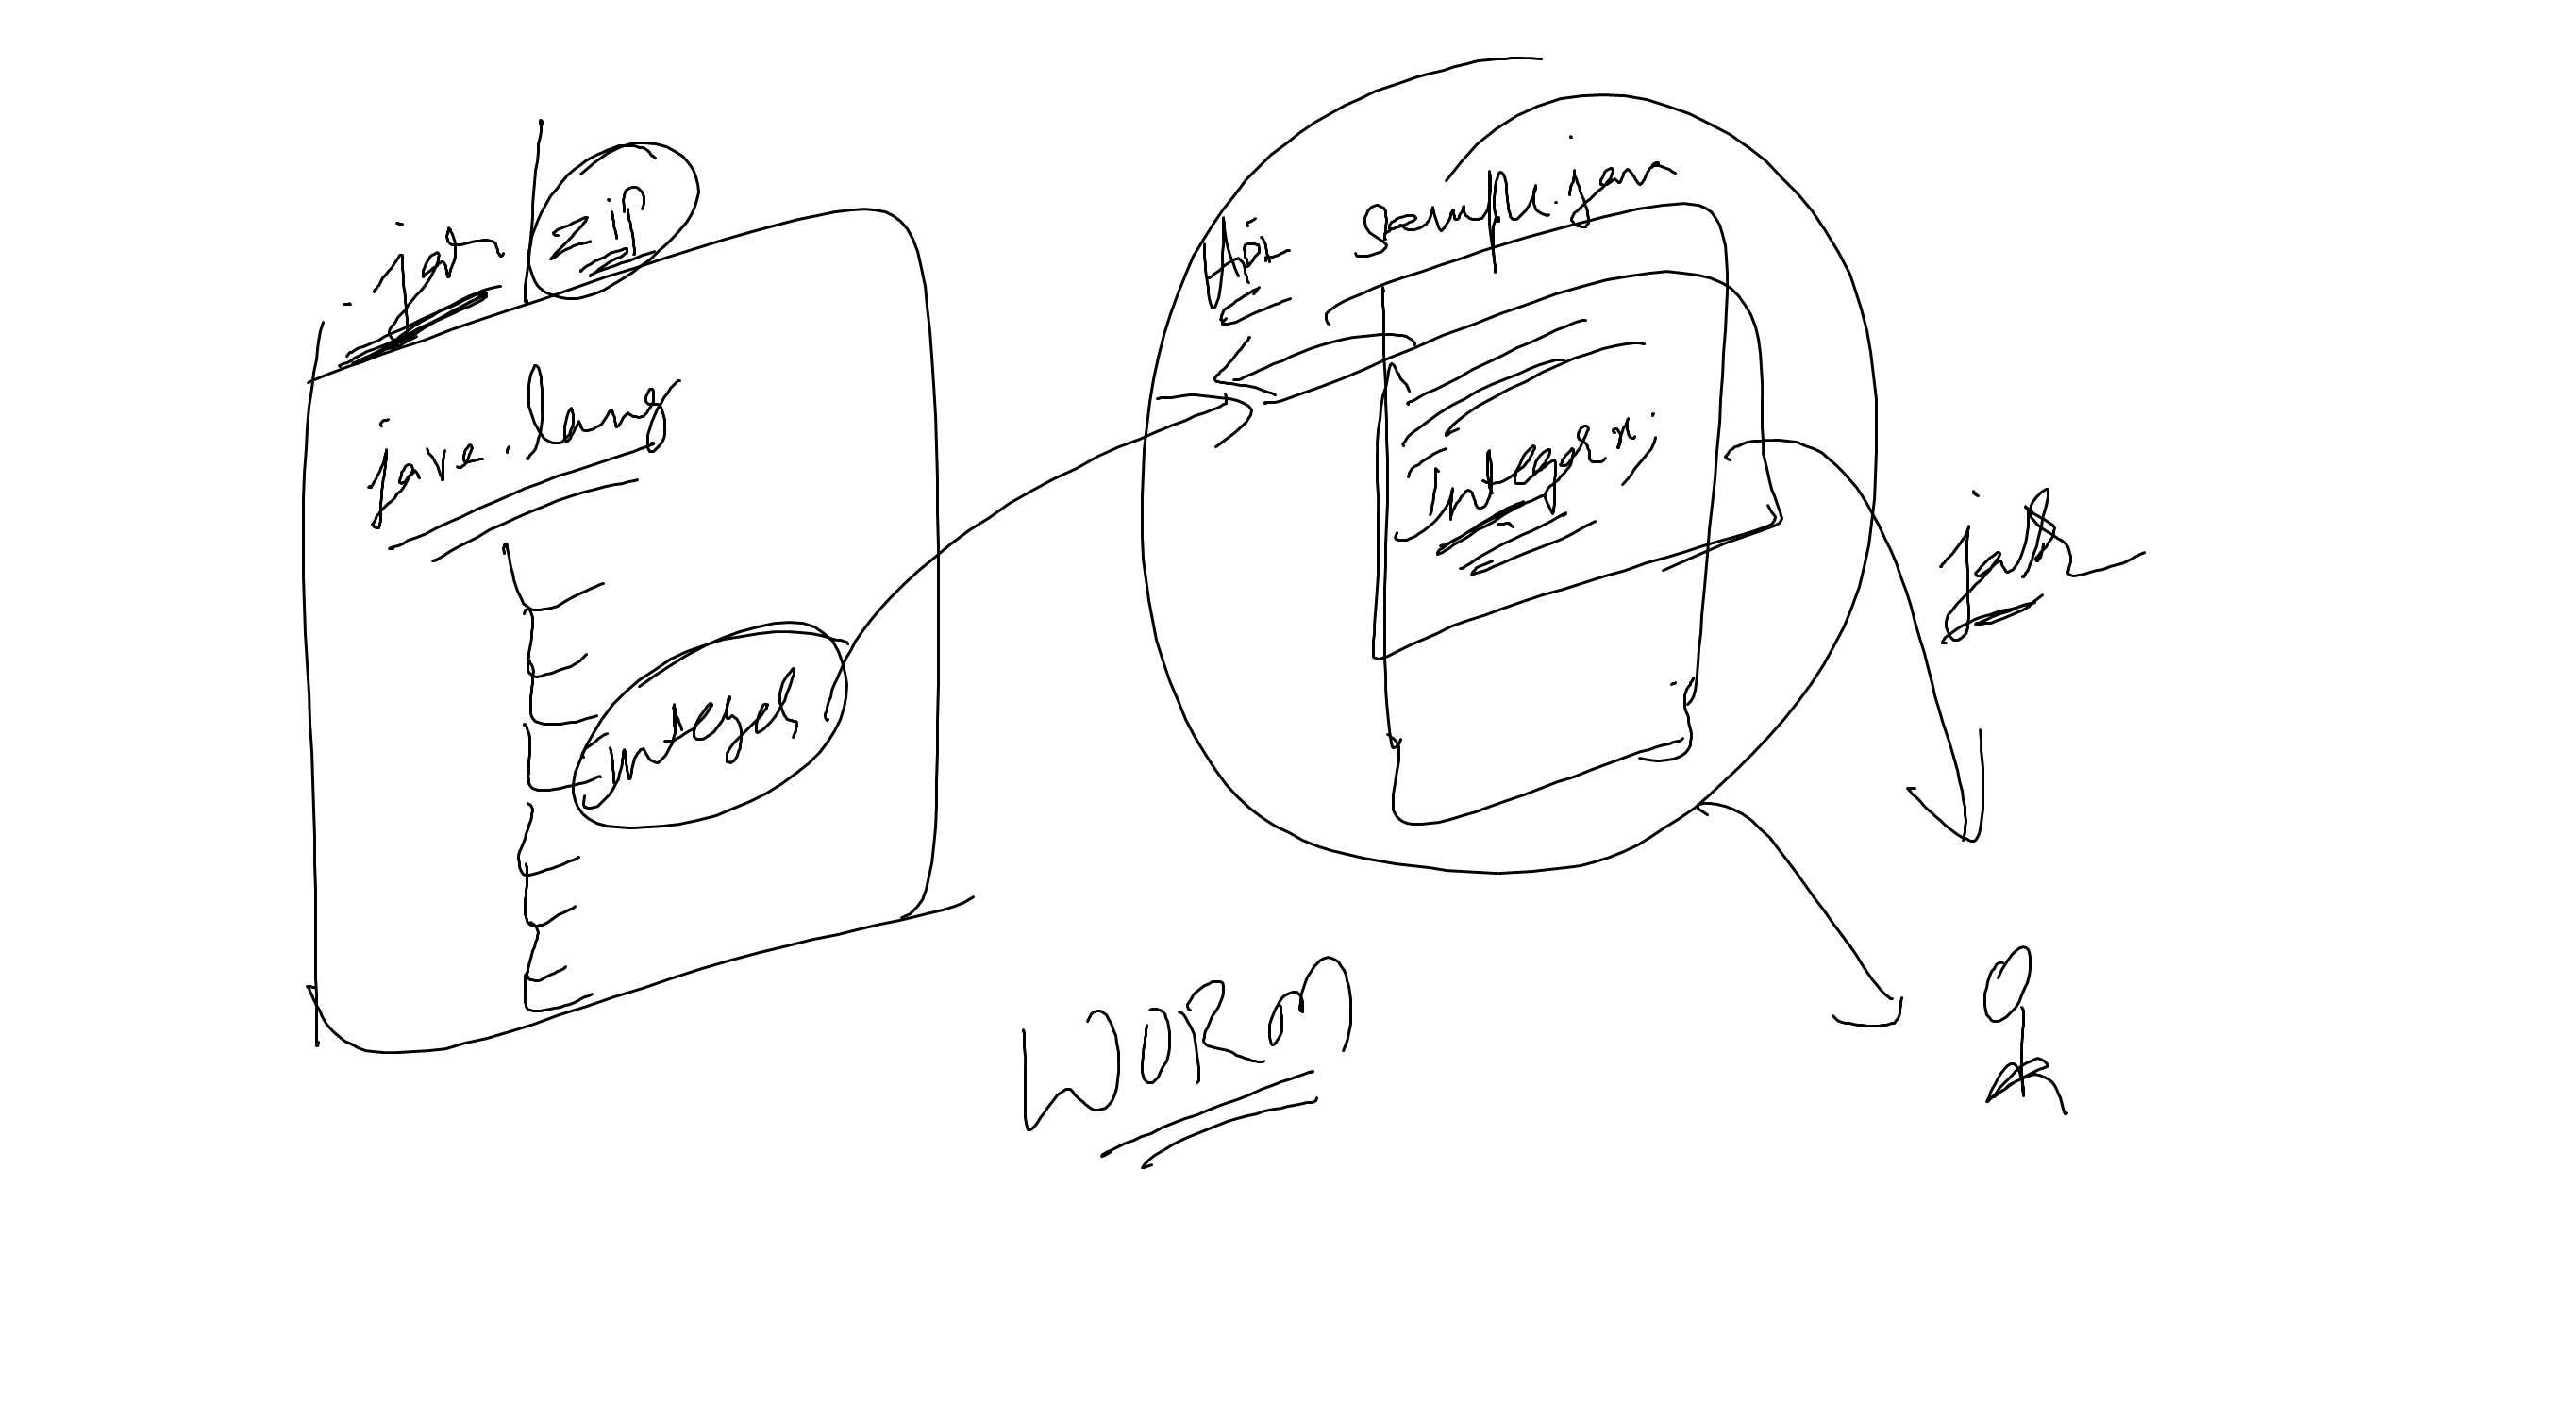 .jar
zip
java.lang
Integer
Api
sample.jar
Integer x;
jar
WORM